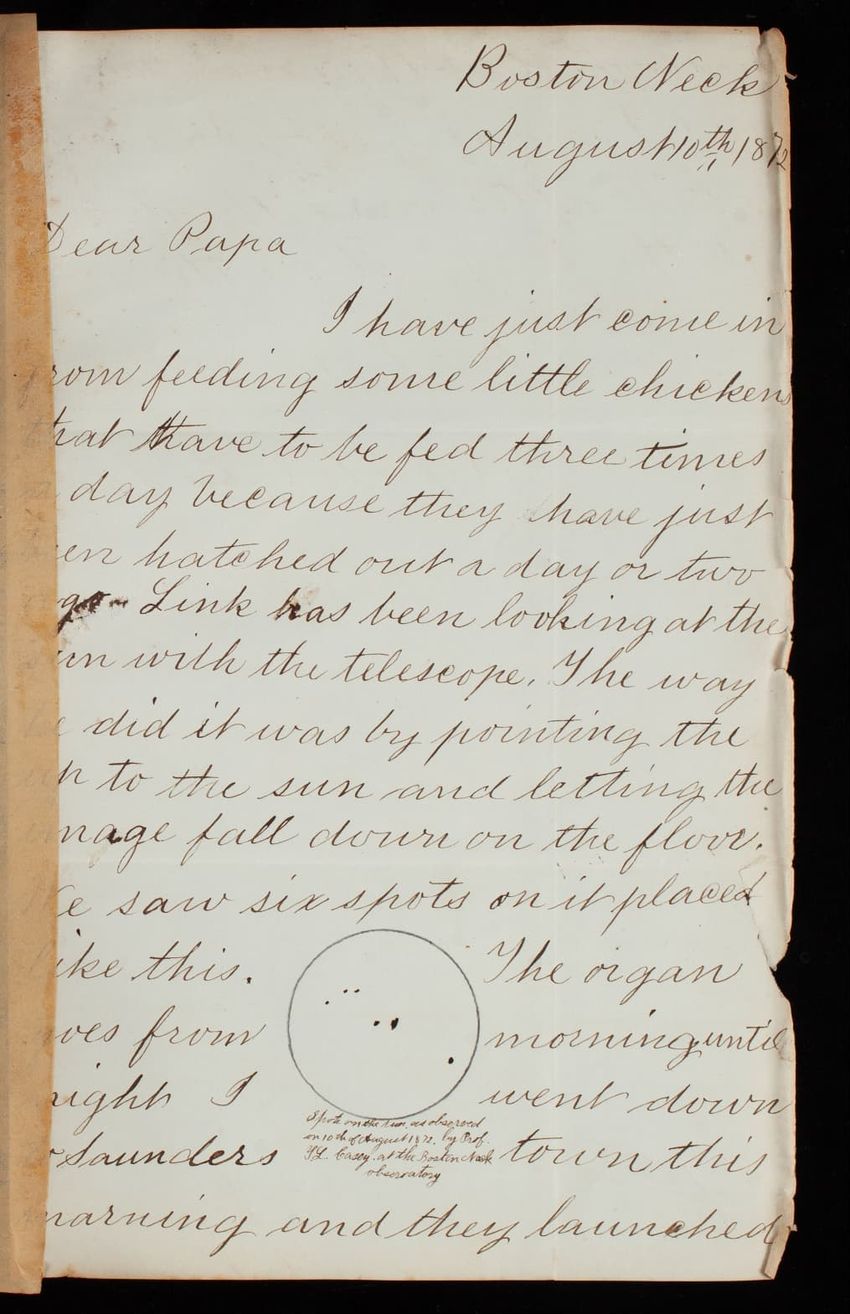 Boston Neck
August 10th, 1872
Dear Papa
I have just come in
from feeding some little chickens
that have to be fed three times
a day because they have just
en hatched out a day or two
ago. Link has been looking at the
un with the telescope. The way
he did it was by pointing the
to the sun and letting the
mage fall down on the floor.
e saw six spots on it placed
like this. The organ
oes from morning until
night I went down
Saunders town this
morning and they launched
Spots on the sun, as observed
on 10th of August 1872, by Prof.
T.L. Casey, at the Boston Neck
observatory